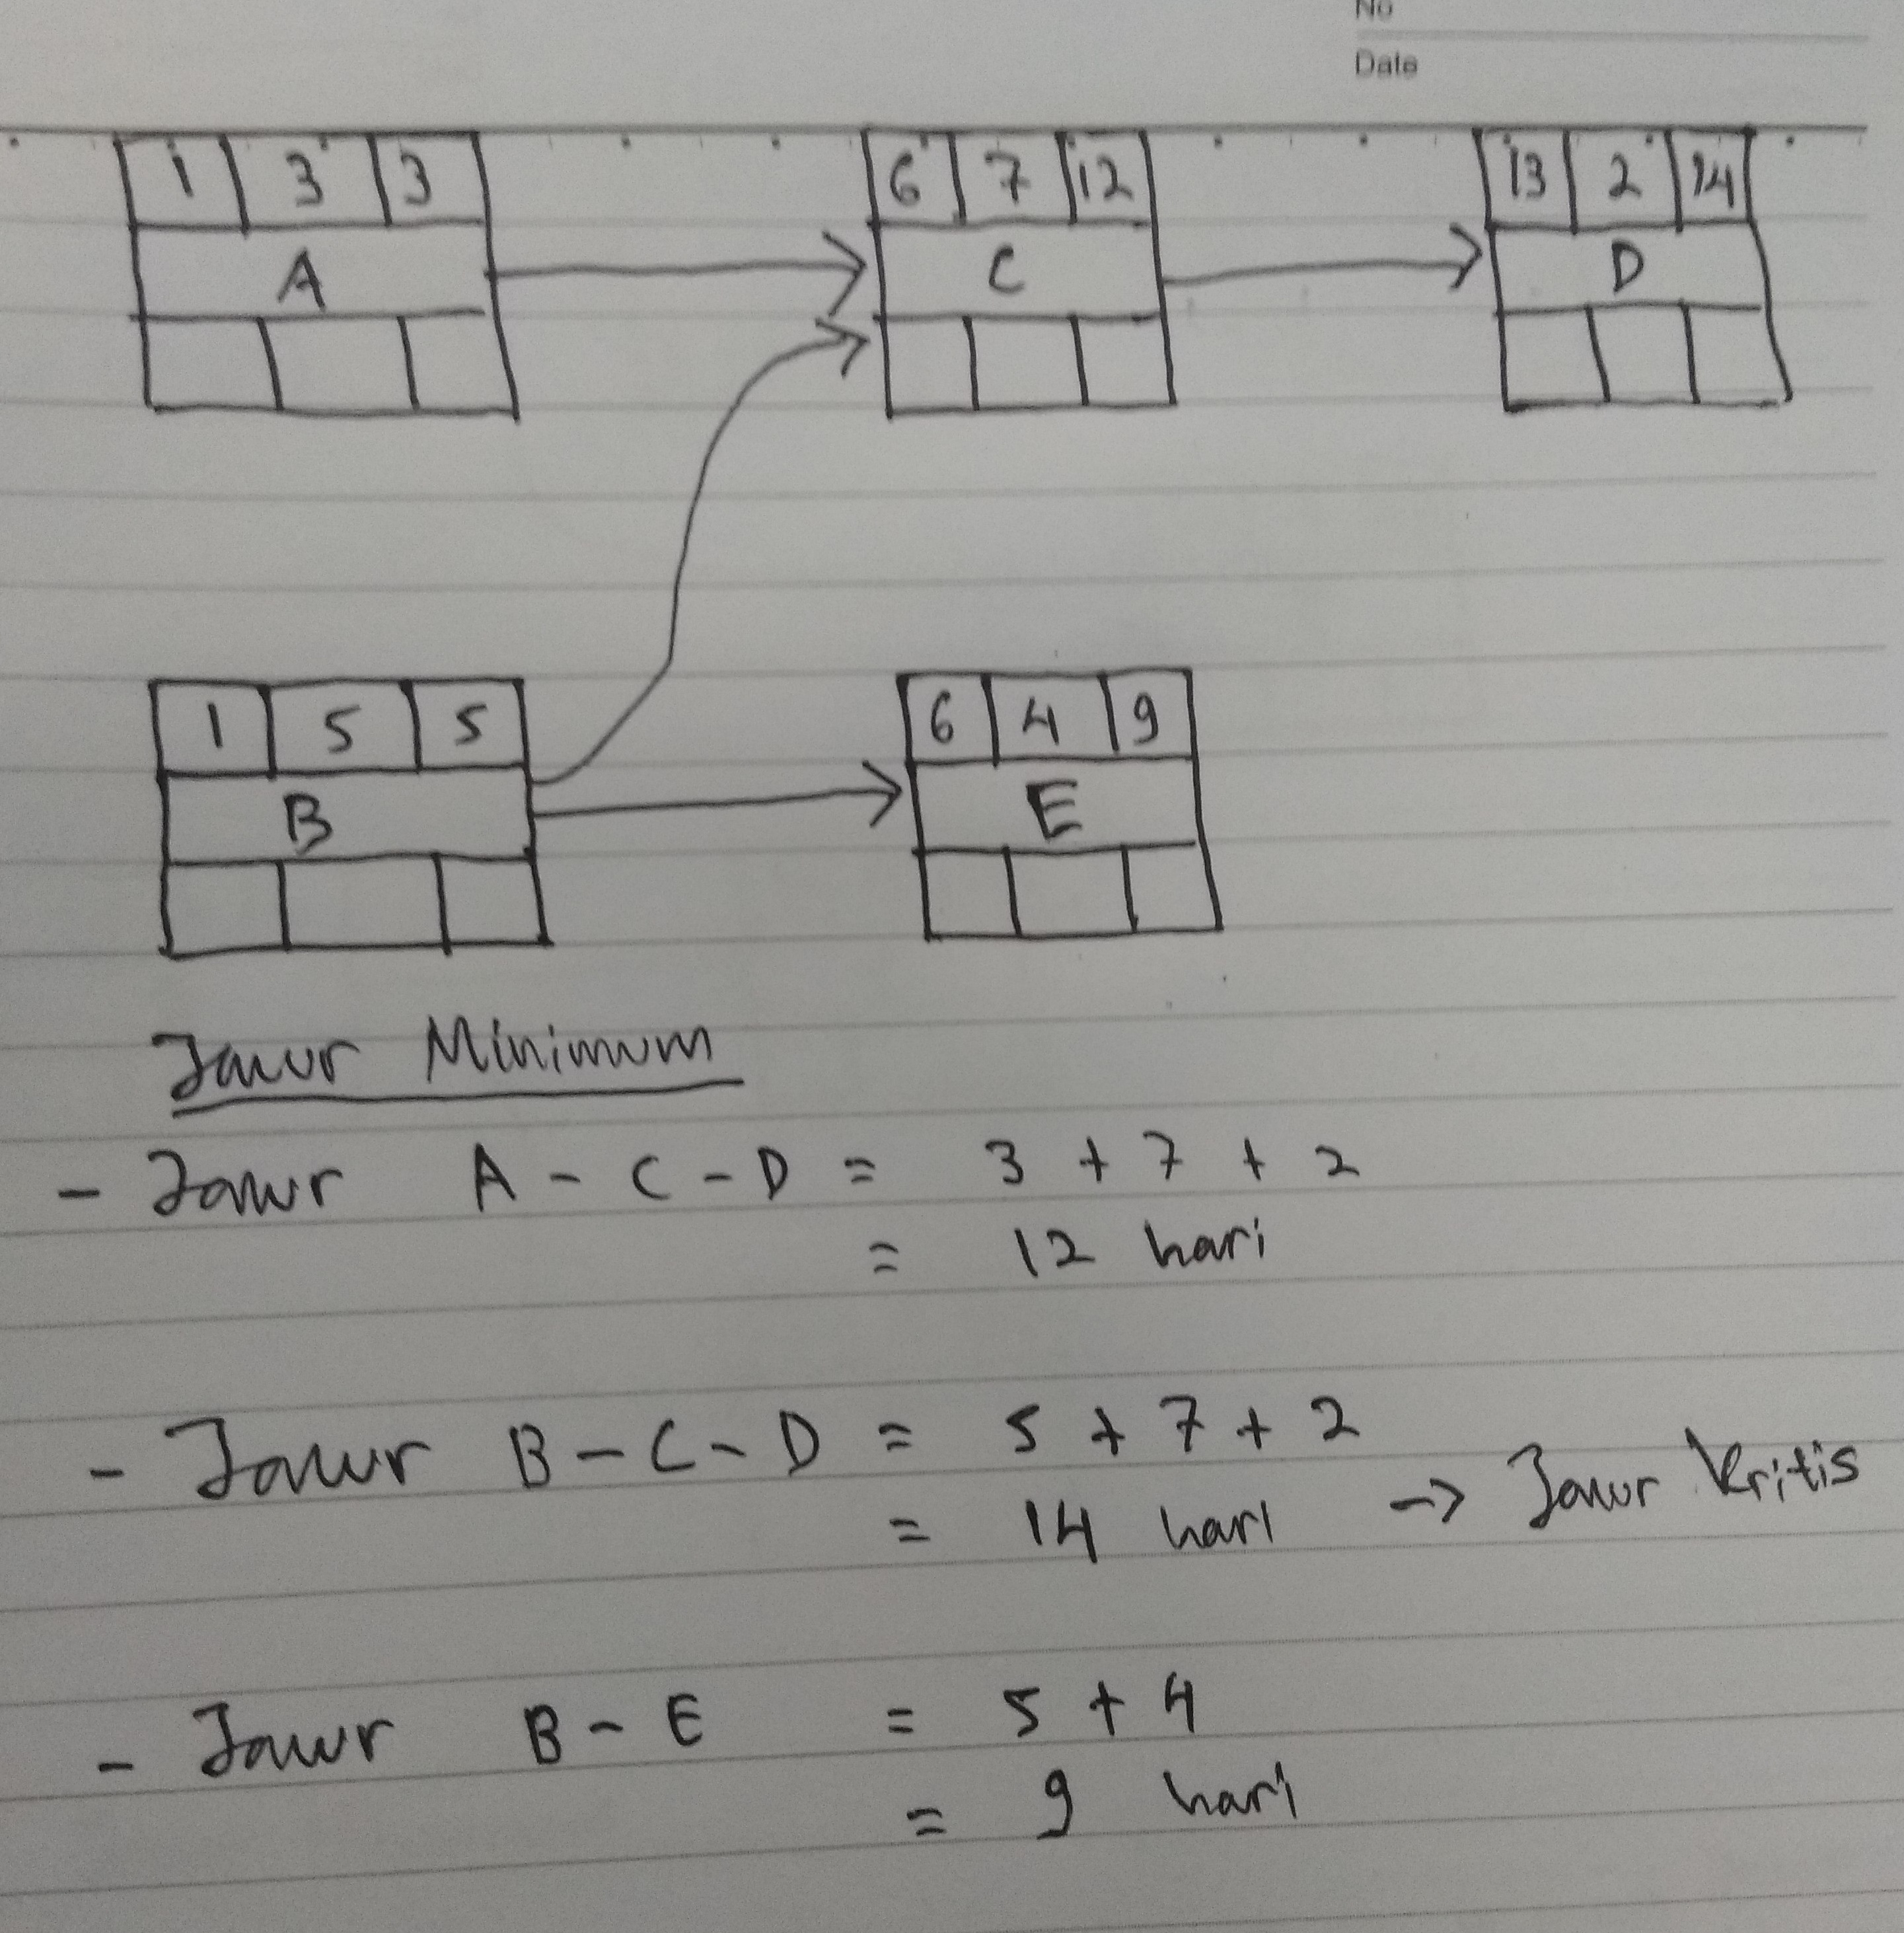 No
Date
1 3 3
A
6 7 12
C
13 2 14
D
1 5 5
B
6 4 9
E
Jalur Minimum
- Jalur A - C - D = 3 + 7 + 2
= 12 hari
- Jalur B - C - D = 5 + 7 + 2
= 14 hari → Jalur Kritis
- Jalur B - E = 5 + 4
= 9 hari